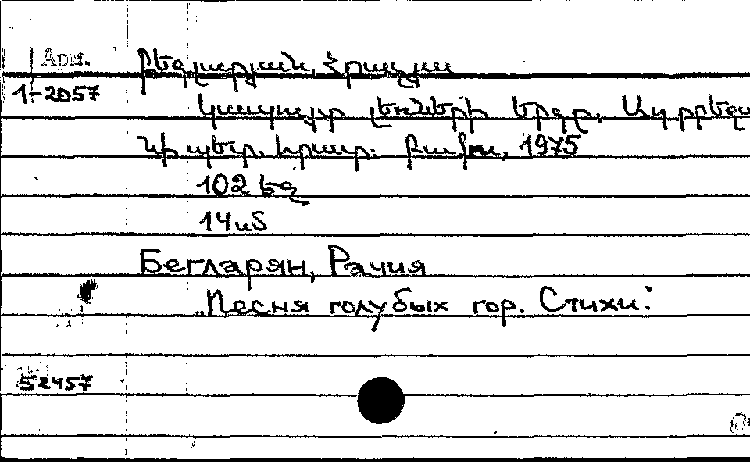 Арм.
1-2057
Բեգլարյան, Հրաչյա
Կապույտ լեռների երգը.
պետ. հրատ. Բաքու, 1975
102 էջ
14 սմ
Бегларян, Рачия
„Песня голубых гор. Стихи"
52457